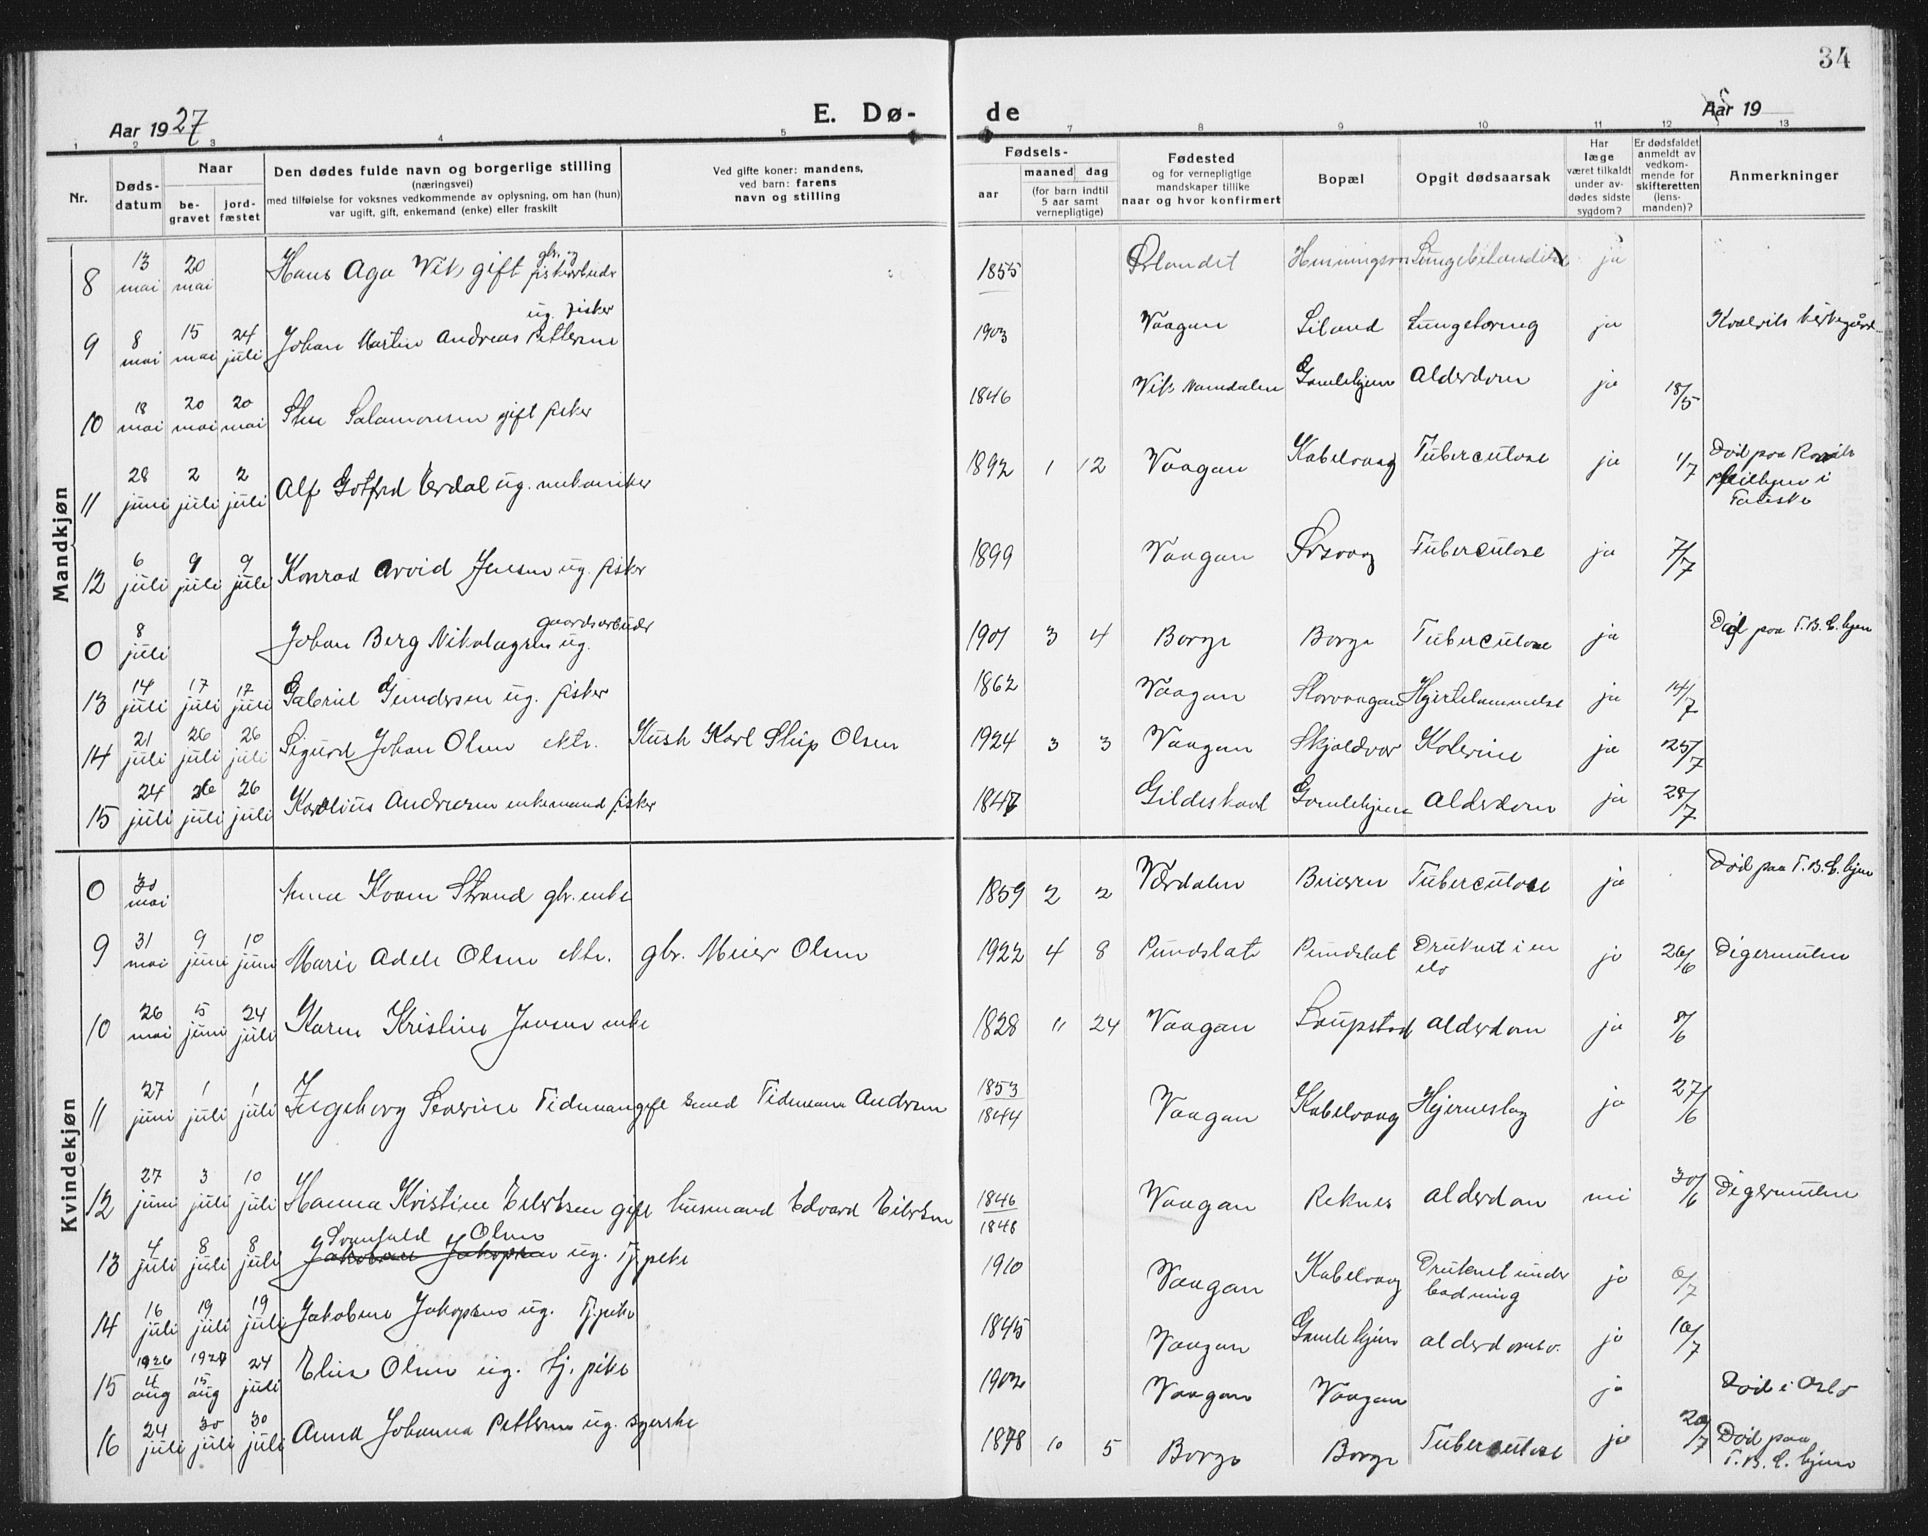 34
Aar 1927
E. Dø- de
Aar 19
1 2 3 4 5 6 7 8 9 10 11 12 13
Nr.
Døds-
datum
Naar
be-
gravet
jord-
fæstet
Den dødes fulde navn og borgerlige stilling
(næringsvei)
med tilføielse for voksnes vedkommende av oplysning, om han (hun)
var ugift, gift, enkemand (enke) eller fraskilt
Ved gifte koner: mandens,
ved barn: farens
navn og stilling
Fødsels-
aar
maaned dag
(for barn indtil
5 aar samt
vernepligtige)
Fødested
og for vernepligtige
mandskaper tillike
naar og hvor konfirmert
Bopæl
Opgit dødsaarsak
Har
læge
været tilkaldt
under av-
dødes sidste
sygdom?
Er dødsfaldet
anmeldt av
vedkom-
mende for
skifteretten
(lens-
manden)?
Anmerkninger
Mandkjøn
8 13 mai 20 mai Hans Aga Vik gift 1855 Ørlandet ja
9 8 mai 15 mai 24 juli Johan Martin Andreas Pettersen ug. fisker 1903 Vaagan ja
10 18 mai 20 mai 20 mai Salamonsen gift fisker 1846 Vik Namdalen Gamlehjem Alderdom ja 18/5
11 28 juni 2 juli 2 juli Alf Gotfred Erdal ug. mekaniker 1892 1 12 Vaagan Kabelvaag Tuberculose ja 1/7 Død paa i Fauske
12 6 juli 9 juli 9 juli Konrad Arvid Jensen ug. fisker 1899 Vaagan Ørsvaag Tuberculose ja 7/7
0 8 juli Johan Berg ug. gaardsarbeider 1901 3 4 Borge Borge Tuberculose ja Død paa T.B.C. hjem
13 14 juli 17 juli 17 juli Gabriel Gundersen ug. fisker 1862 Vaagan Storvaagan Hjertelammelse ja 14/7
14 21 juli 26 juli 26 juli Sigurd Johan Olsen ekte. Karl Olsen 1924 3 3 Vaagan Skjoldvær ja 25/7
15 24 juli 26 juli 26 juli Andersen enkemand fisker 1847 Gildeskaal Gamlehjem Alderdom ja 28/7
Kvindekjøn
0 30 mai Anna Kvam Strand gbr. enke 1859 2 2 Værdalen Tuberculose ja Død paa T.B.C. hjem
9 31 mai 9 juni 10 juni Marie Adele Olsen ekte. gbr. Meier Olsen 1922 4 8 Pundslet Pundslet Druknet i en elv ja 26/6 Digermulen
10 26 mai 5 juni 24 juli Karen Kristine Jensen enke 1828 11 24 Vaagan Laupstad Alderdom ja
11 27 juni 1 juli 1 juli Ingeborg Severine Tideman gift Tidemann Andersen 1853 1844 Vaagan Kabelvaag Hjerneslag ja 27/6
12 27 juni 3 juli 10 juli Hanna Kristine Eilertsen gift husmand Edvard Eilertsen 1846 1848 Vaagan Reknes Alderdom nei 30/6 Digermulen
Svanhild Olsen
13 4 juli 8 juli 8 juli Jakobine Jakopsen ug. tj.pike 1910 Vaagan Kabelvaag Druknet under badning ja 6/7
14 16 juli 19 juli 19 juli Jakobine Jakopsen ug. tj.pike 1845 Vaagan Gamlehjem ja
15 1926 4 aug 1927 15 aug 24 juli Elise Olsen ug. tj. pike 1902 Vaagan Vaagan ja Død i Oslo
16 24 juli 30 juli 30 juli Anna Johanna Pettersen ug. syerske 1878 10 5 Borge Borge Tuberculose ja Død paa T.B.C. hjem